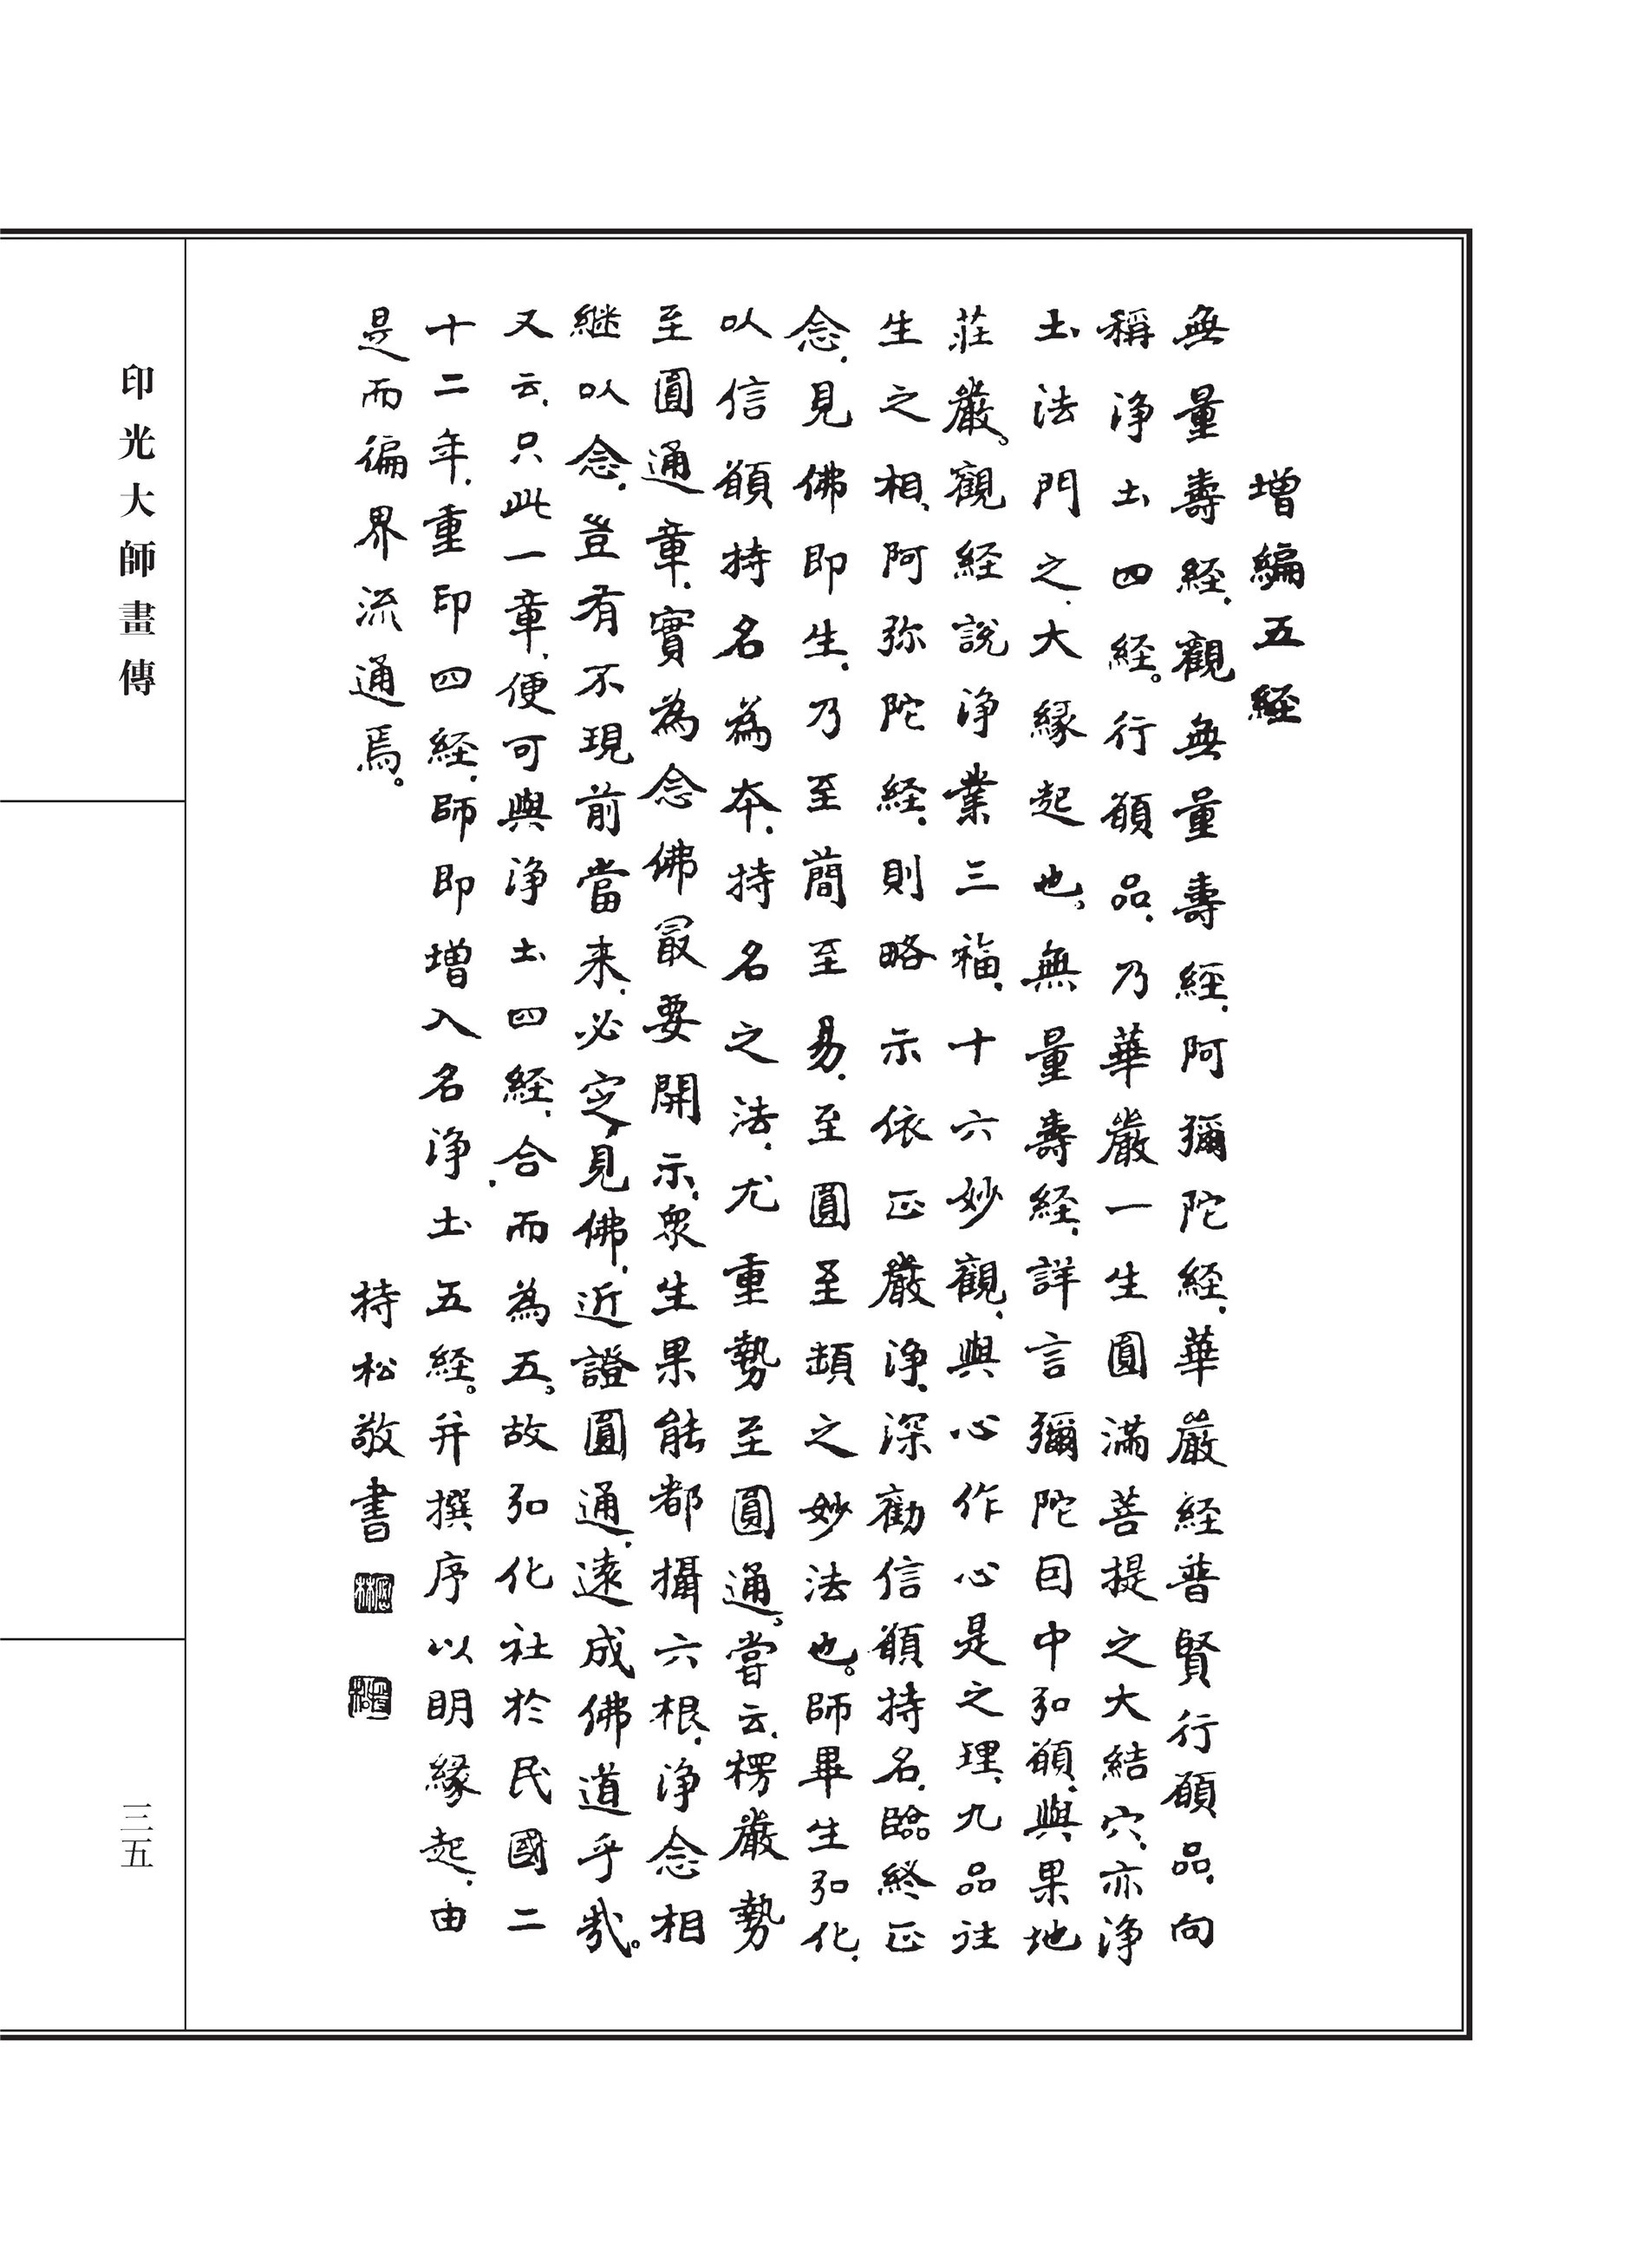 增編五経
無量壽經.觀無量壽經.阿彌陀経.華嚴経普賢行願品.向
稱淨土四経。行願品.乃華嚴一生圓滿菩提之大結穴.亦淨
土法門之.大緣起也。無量壽経.詳言彌陀因中弘願.與果地
莊嚴。觀経說淨業三福.十六妙觀.與心作心是之理.九品往
生之相.阿弥陀経.則略示依正嚴淨.深勸信願持名.臨終正
念.見佛即生.乃至簡至易.至圓至頓之妙法也。師畢生弘化.
以信願持名為本.持名之法.尤重勢至圓通。嘗云.楞嚴勢
至圓通章.實為念佛最要開示.衆生果能都攝六根.淨念相
継以念.豈有不現前當来.必定見佛.近證圓通.遠成佛道乎哉。
又云.只此一章.便可與淨土四経.合而為五。故弘化社於民國二
十二年.重印四経.師即增入名淨土五経。并撰序以明緣起.由
是而徧界流通焉。
持松敬書
印光大師畫傳
三五